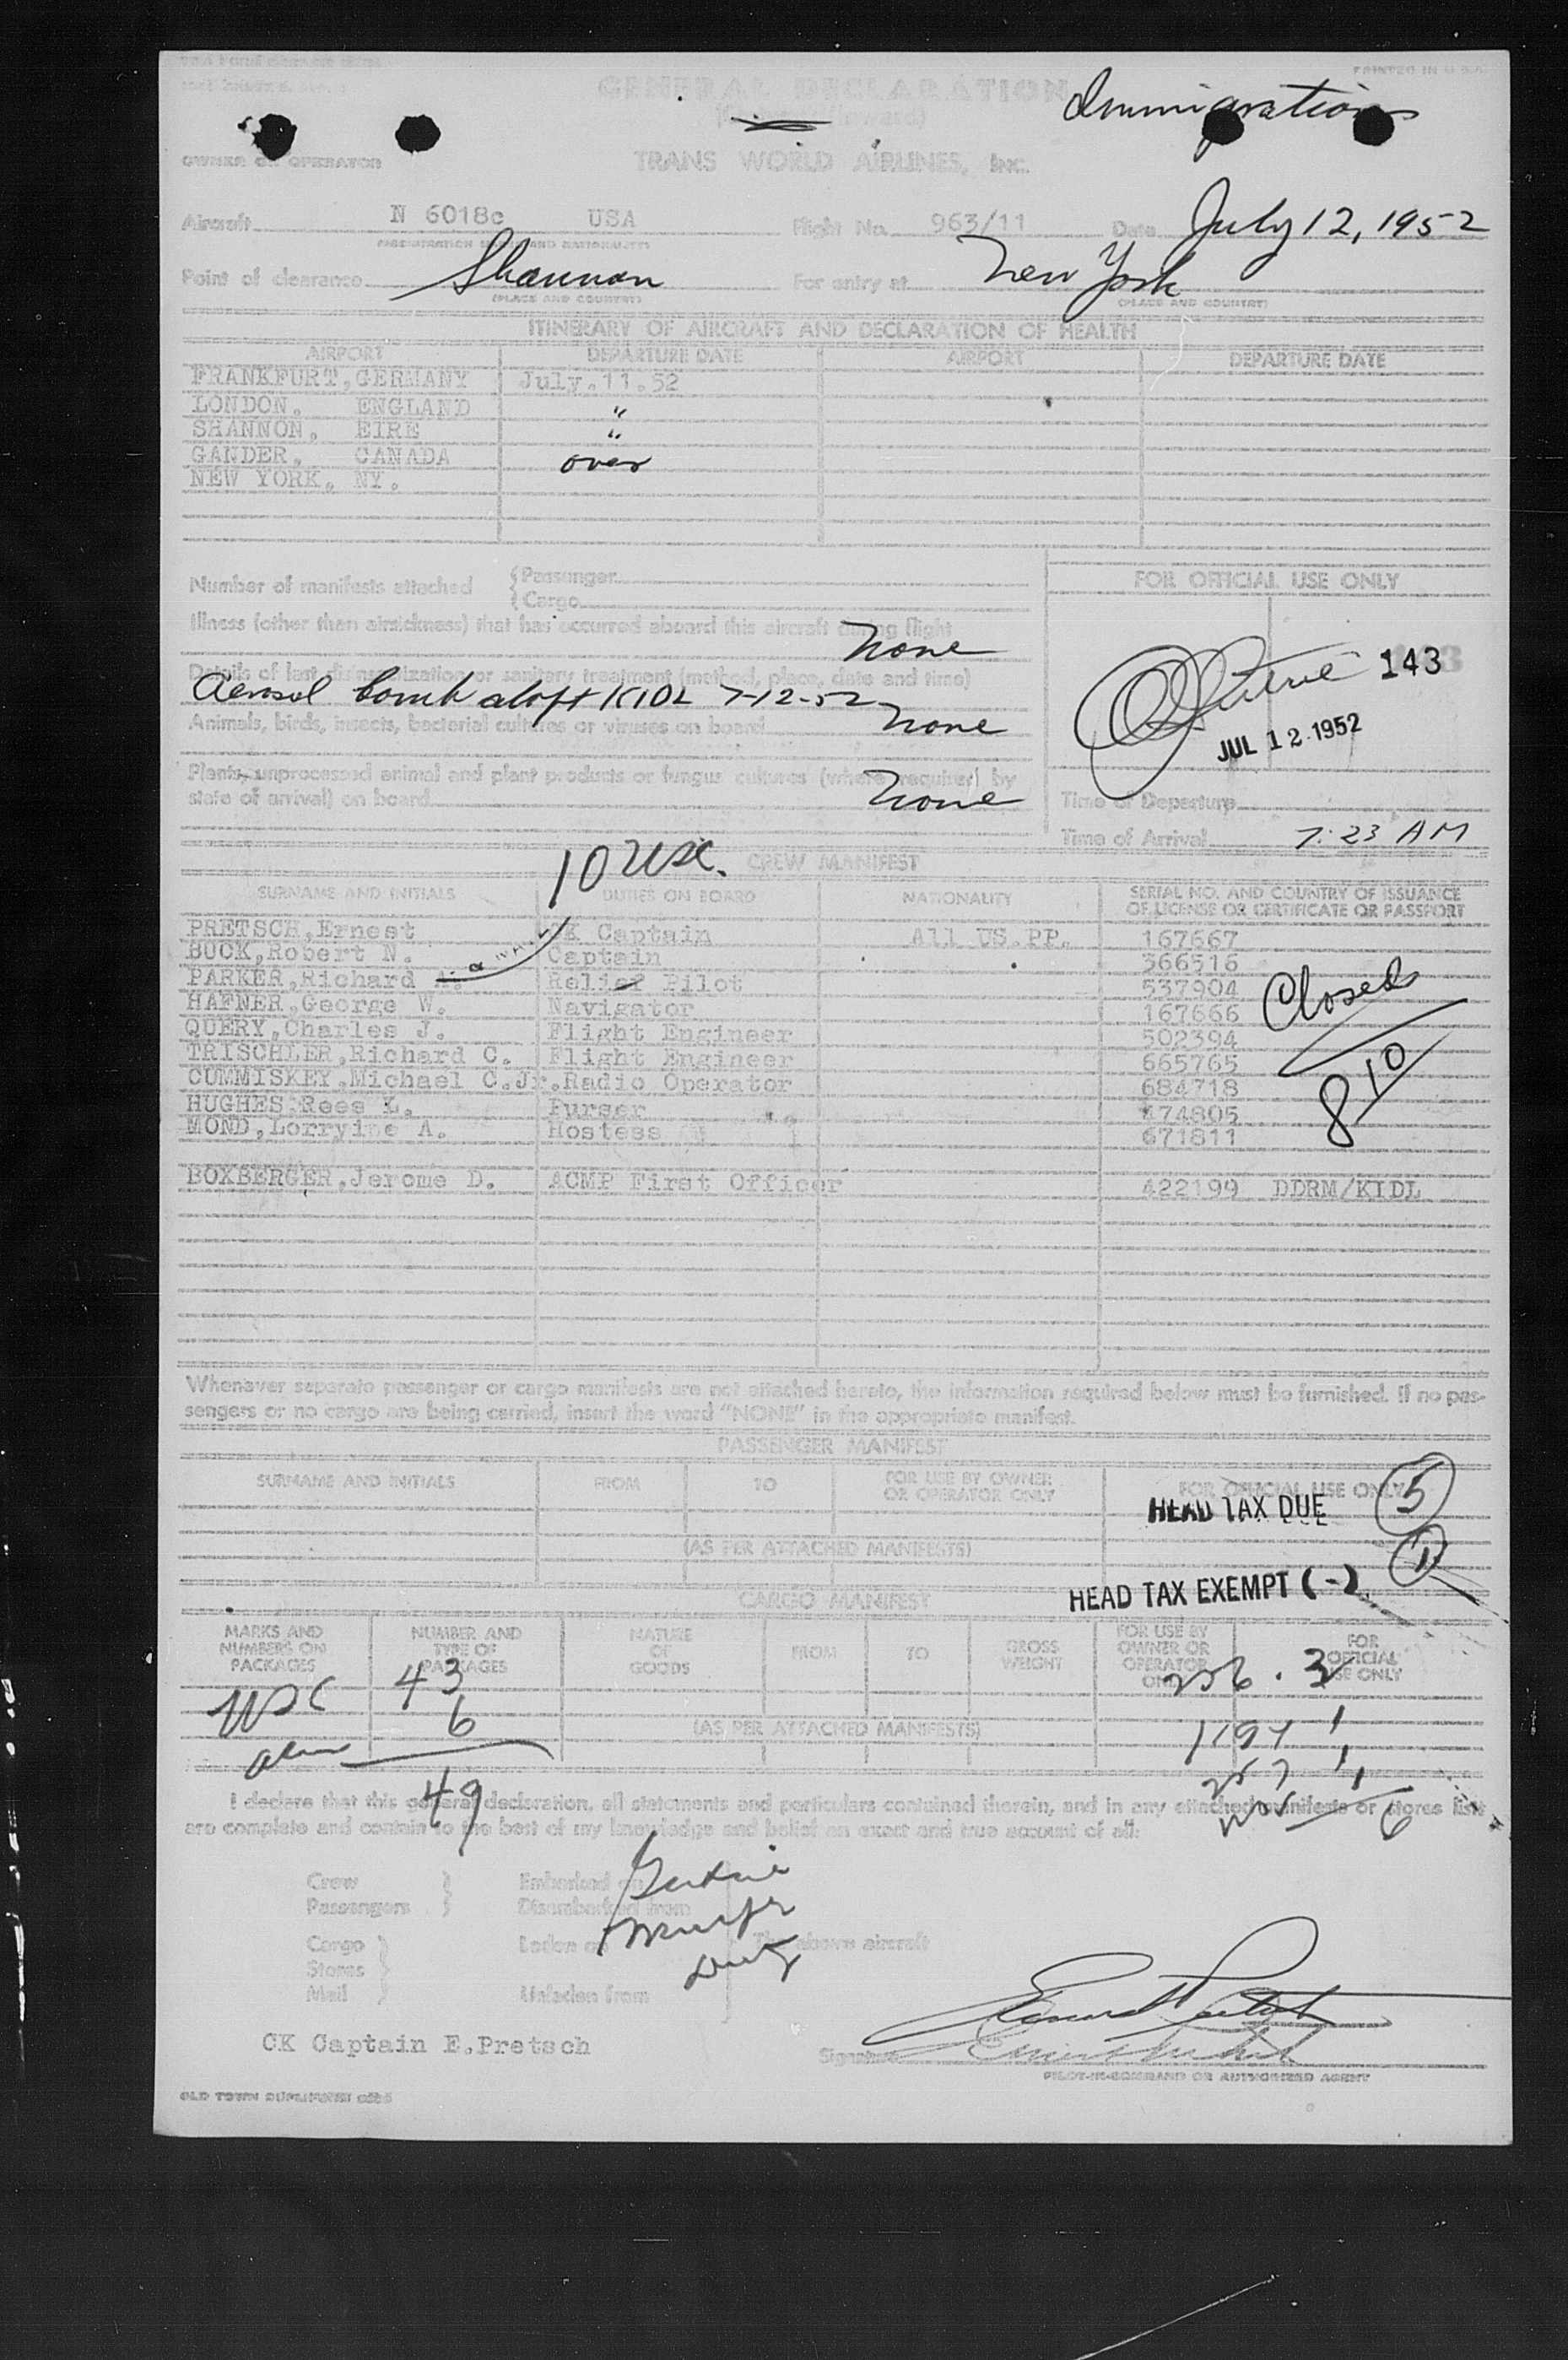 PRINTED IN U.S.A.
GENERAL DECLARATION
Immigration
OWNER OR OPERATOR TRANS WORLD AIRLINES, INC.
Aircraft N 6018c USA Flight No. 963/11 Date July 12, 1952
(REGISTRATION MARKS AND NATIONALITY)
Point of clearance Shannon For entry at New York
(PLACE AND COUNTRY) (PLACE AND COUNTRY)
ITINERARY OF AIRCRAFT AND DECLARATION OF HEALTH
AIRPORT DEPARTURE DATE AIRPORT DEPARTURE DATE
FRANKFURT, GERMANY July.11.52
LONDON, ENGLAND "
SHANNON, EIRE "
GANDER, CANADA over
NEW YORK, NY.
Number of manifests attached { Passenger
{ Cargo
FOR OFFICIAL USE ONLY
Illness (other than airsickness) that has occurred aboard this aircraft during flight
None
143
Details of last disinsectization or sanitary treatment (method, place, date and time)
Aerosol bomb aloft KIDL 7-12-52
JUL 12 1952
Animals, birds, insects, bacterial cultures or viruses on board None
Plants, unprocessed animal and plant products or fungus cultures (where required by
state of arrival) on board None
Time of Departure
Time of Arrival 7:23 AM
10 USC. CREW MANIFEST
SURNAME AND INITIALS DUTIES ON BOARD NATIONALITY SERIAL NO. AND COUNTRY OF ISSUANCE
OF LICENSE OR CERTIFICATE OR PASSPORT
PRETSCH,Ernest CK Captain All US.PP. 167667
BUCK,Robert N. Captain 366516
PARKER,Richard Relief Pilot 537904
HAFNER,George W. Navigator 167666
QUERY,Charles J. Flight Engineer 502394
TRISCHLER,Richard C. Flight Engineer 665765
CUMMISKEY.Michael C.Jr.Radio Operator 684718
HUGHES Rees L. Purser 474805
MOND,Lorryine A. Hostess 671811
Closed
8 10
BOXBERGER,Jerome D. ACMP First Officer 422199 DDRM/KIDL
Whenever separate passenger or cargo manifests are not attached hereto, the information required below must be furnished. If no pas-
sengers or no cargo are being carried, insert the word "NONE" in the appropriate manifest.
PASSENGER MANIFEST
SURNAME AND INITIALS FROM TO FOR USE BY OWNER
OR OPERATOR ONLY FOR OFFICIAL USE ONLY
HEAD TAX DUE 5
(AS PER ATTACHED MANIFESTS) 1
CARGO MANIFEST HEAD TAX EXEMPT (-)
MARKS AND
NUMBERS ON
PACKAGES NUMBER AND
TYPE OF
PACKAGES NATURE
OF
GOODS FROM TO GROSS
WEIGHT FOR USE BY
OWNER OR
OPERATOR
ONLY FOR
OFFICIAL
USE ONLY
USC 43
alien 6
49
(AS PER ATTACHED MANIFESTS)
6
I declare that this general declaration, all statements and particulars contained therein, and in any attached manifests or stores lists
are complete and contain to the best of my knowledge and belief an exact and true account of all:
Crew } Embarked on
Passengers } Disembarked from
Cargo } Laden on The above aircraft
Stores
Mail } Unladen from
CK Captain E.Pretsch
Signature
PILOT-IN-COMMAND OR AUTHORIZED AGENT